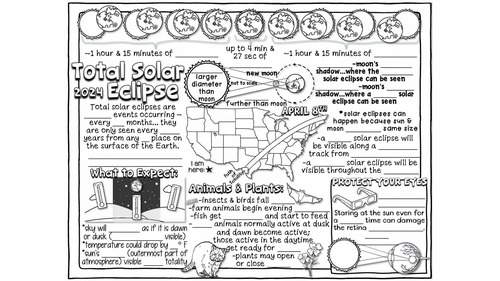 ~1 hour & 15 minutes of ________
up to 4 min &
27 sec of
________
~1 hour & 15 minutes of ________
Total Solar
2024 Eclipse
larger
diameter
than
moon
new moon
not to scale
further than moon
________ -moon's ________
shadow...where the ________
solar eclipse can be seen
________ -moon's ________
shadow...where a ________ solar
eclipse can be seen
Total solar eclipses are
events occurring ~
every ___ months... they
are only seen every ____
years from any ____ place on
the surface of the Earth.
APRIL 8th
*solar eclipses can
happen because sun &
moon ________ same size
-a ________ solar eclipse will
be visible along a ________
track from ________
-a ________ solar eclipse will be
visible throughout the ________
I am
here:
What to Expect:
*sky will ________ as if it is dawn
or dusk (________ visible)
*temperature could drop by __° F
*sun's ________ (outermost part of
atmosphere) visible ____ totality
Animals & Plants:
-insects & birds fall ________
-farm animals begin evening ________
-fish get ________ and start to feed
-________ animals normally active at dusk
and dawn become active;
those active in the daytime
get ready for ________
-plants may open
or close
PROTECT YOUR EYES
Staring at the sun even for
a ________ time can damage
the retina ________